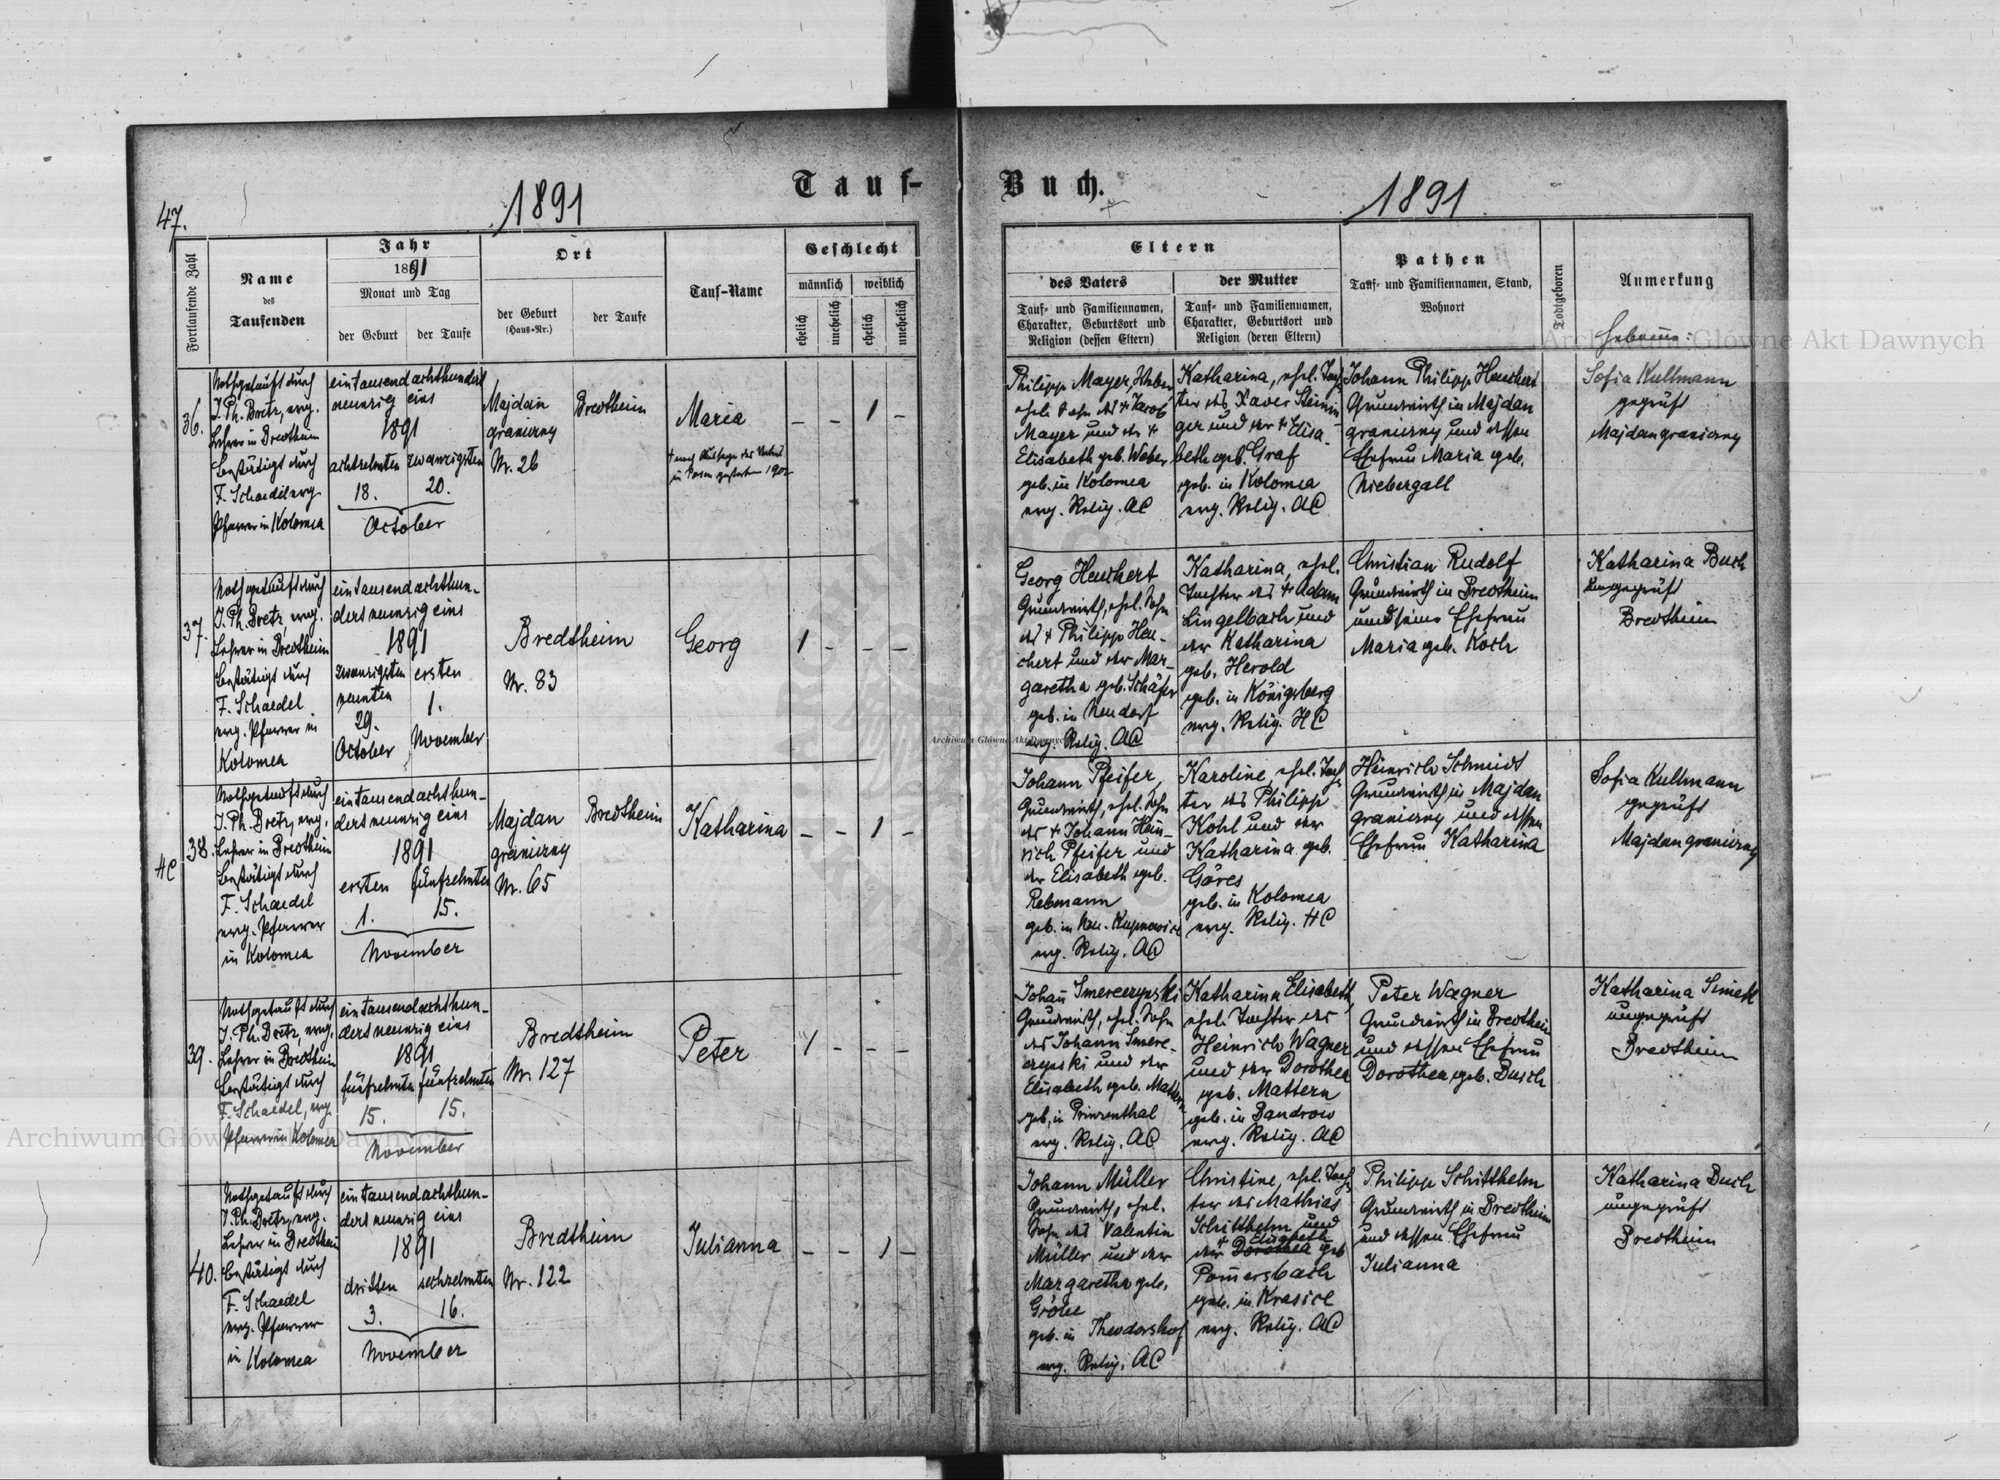 Tauf-
Buch.
47.
1891
1891
Fortlaufende Zahl
Name
des
Taufenden
Jahr
1891
Monat und Tag
der Geburt
der Taufe
Ort
der Geburt
(Haus-Nr.)
der Taufe
Tauf-Name
Geschlecht
männlich
weiblich
ehelich
unehelich
ehelich
unehelich
Eltern
des Vaters
Tauf- und Familiennamen,
Charakter, Geburtsort und
Religion (dessen Eltern)
der Mutter
Tauf- und Familiennamen,
Charakter, Geburtsort und
Religion (deren Eltern)
Pathen
Tauf- und Familiennamen, Stand,
Wohnort
Todtgeboren
Anmerkung
36.
Nothgetauft durch
J. Ph. Bretz, evg.
Lehrer in Bredtheim
bestätigt durch
F. Schaedel evg.
Pfarrer in Kolomea
eintausendachthundert
neunzig eins
1891
achtzehnten zwanzigsten
18. 20.
October
Majdan
graniczny
Nr. 26
Bredtheim
Maria
in Posen gestorben 1902
– – 1 –
Philipp Mayer,
ehel. Sohn des + Jacob
Mayer und der +
Elisabeth geb. Weber
geb. in Kolomea
evg. Relig. AC
Katharina, ehel. Toch-
ter des Xaver Steinin-
ger und der + Elisa-
beth geb. Graf
geb. in Kolomea
evg. Relig. AC
Johann Philipp Heuchert
Grundwirth in Majdan
graniczny und dessen
Ehefrau Maria geb.
Niebergall
Hebamme:
Sofia Kullmann
geprüft
Majdan graniczny
37.
Nothgetauft durch
J. Ph. Bretz, evg.
Lehrer in Bredtheim
bestätigt durch
F. Schaedel
evg. Pfarrer in
Kolomea
eintausendachthun-
dertneunzig eins
1891
zwanzigsten ersten
neunten
29. 1.
October November
Bredtheim
Nr. 83
Georg
1 – – –
Georg Heuchert
Grundwirth, ehel. Sohn
des + Philipp Heu-
chert und der Mar-
garetha geb. Schäfer
geb. in Neudorf
evg. Relig. AC
Katharina, ehel.
Tochter des + Adam
Lingelbach und
der Katharina
geb. Herold
geb. in Königsberg
evg. Relig. HC
Christian Rudolf
Grundwirth in Bredtheim
und seine Ehefrau
Maria geb. Koch
Katharina Buch
ungeprüft
Bredtheim
HC
38.
Nothgetauft durch
J. Ph. Bretz, evg.
Lehrer in Bredtheim
bestätigt durch
F. Schaedel
evg. Pfarrer
in Kolomea
eintausendachthun-
dertneunzig eins
1891
ersten fünfzehnten
1. 15.
November
Majdan
graniczny
Nr. 65
Bredtheim
Katharina
– – 1 –
Johann Pfeifer,
Grundwirth, ehel. Sohn
des + Johann Hein-
rich Pfeifer und
der Elisabeth geb.
Rebmann
evg. Relig. AC
Karoline, ehel. Toch-
ter des Philipp
Kohl und der
Katharina geb.
Göres
geb. in Kolomea
evg. Relig. HC
Heinrich Schmidt
Grundwirth in Majdan
graniczny und dessen
Ehefrau Katharina
Sofia Kullmann
geprüft
Majdan graniczny
39.
Nothgetauft durch
J. Ph. Bretz, evg.
Lehrer in Bredtheim
bestätigt durch
F. Schaedel, evg.
Pfarrer in Kolomea
eintausendachthun-
dertneunzig eins
1891
fünfzehnten fünfzehnten
15. 15.
November
Bredtheim
Nr. 127
Peter
1 – – –
Johann Smereczynski
Grundwirth, ehel. Sohn
des Johann Smere-
czynski und der
Elisabeth geb. Mattern
geb. in Prinzenthal
evg. Relig. AC
Katharina Elisabeth,
ehel. Tochter des
Heinrich Wagner
und der Dorothea
geb. Mattern
geb. in Bandrow
evg. Relig. AC
Peter Wagner
Grundwirth in Bredtheim
und dessen Ehefrau
Dorothea geb. Busch
Katharina
ungeprüft
Bredtheim
40.
Nothgetauft durch
J. Ph. Bretz, evg.
Lehrer in Bredtheim
bestätigt durch
F. Schaedel
evg. Pfarrer
in Kolomea
eintausendachthun-
dertneunzig eins
1891
dritten sechzehnten
3. 16.
November
Bredtheim
Nr. 122
Julianna
– – 1 –
Johann Müller
Grundwirth, ehel.
Sohn des Valentin
Müller und der
Margaretha geb.
Gröhe
geb. in Theodorshof
evg. Relig. AC
Christine, ehel. Toch-
ter des Mathias
Schitthelm und
+ Elisabeth
der Dorothea geb
Pom̄ersbach
geb. in Krasice
evg. Relig. AC
Philipp Schitthelm
Grundwirth in Bredtheim
und dessen Ehefrau
Julianna
Katharina Buch
ungeprüft
Bredtheim
Archiwum Główne Akt Dawnych
Archiwum Główne Akt Dawnych
Archiwum Główne Akt Dawnych